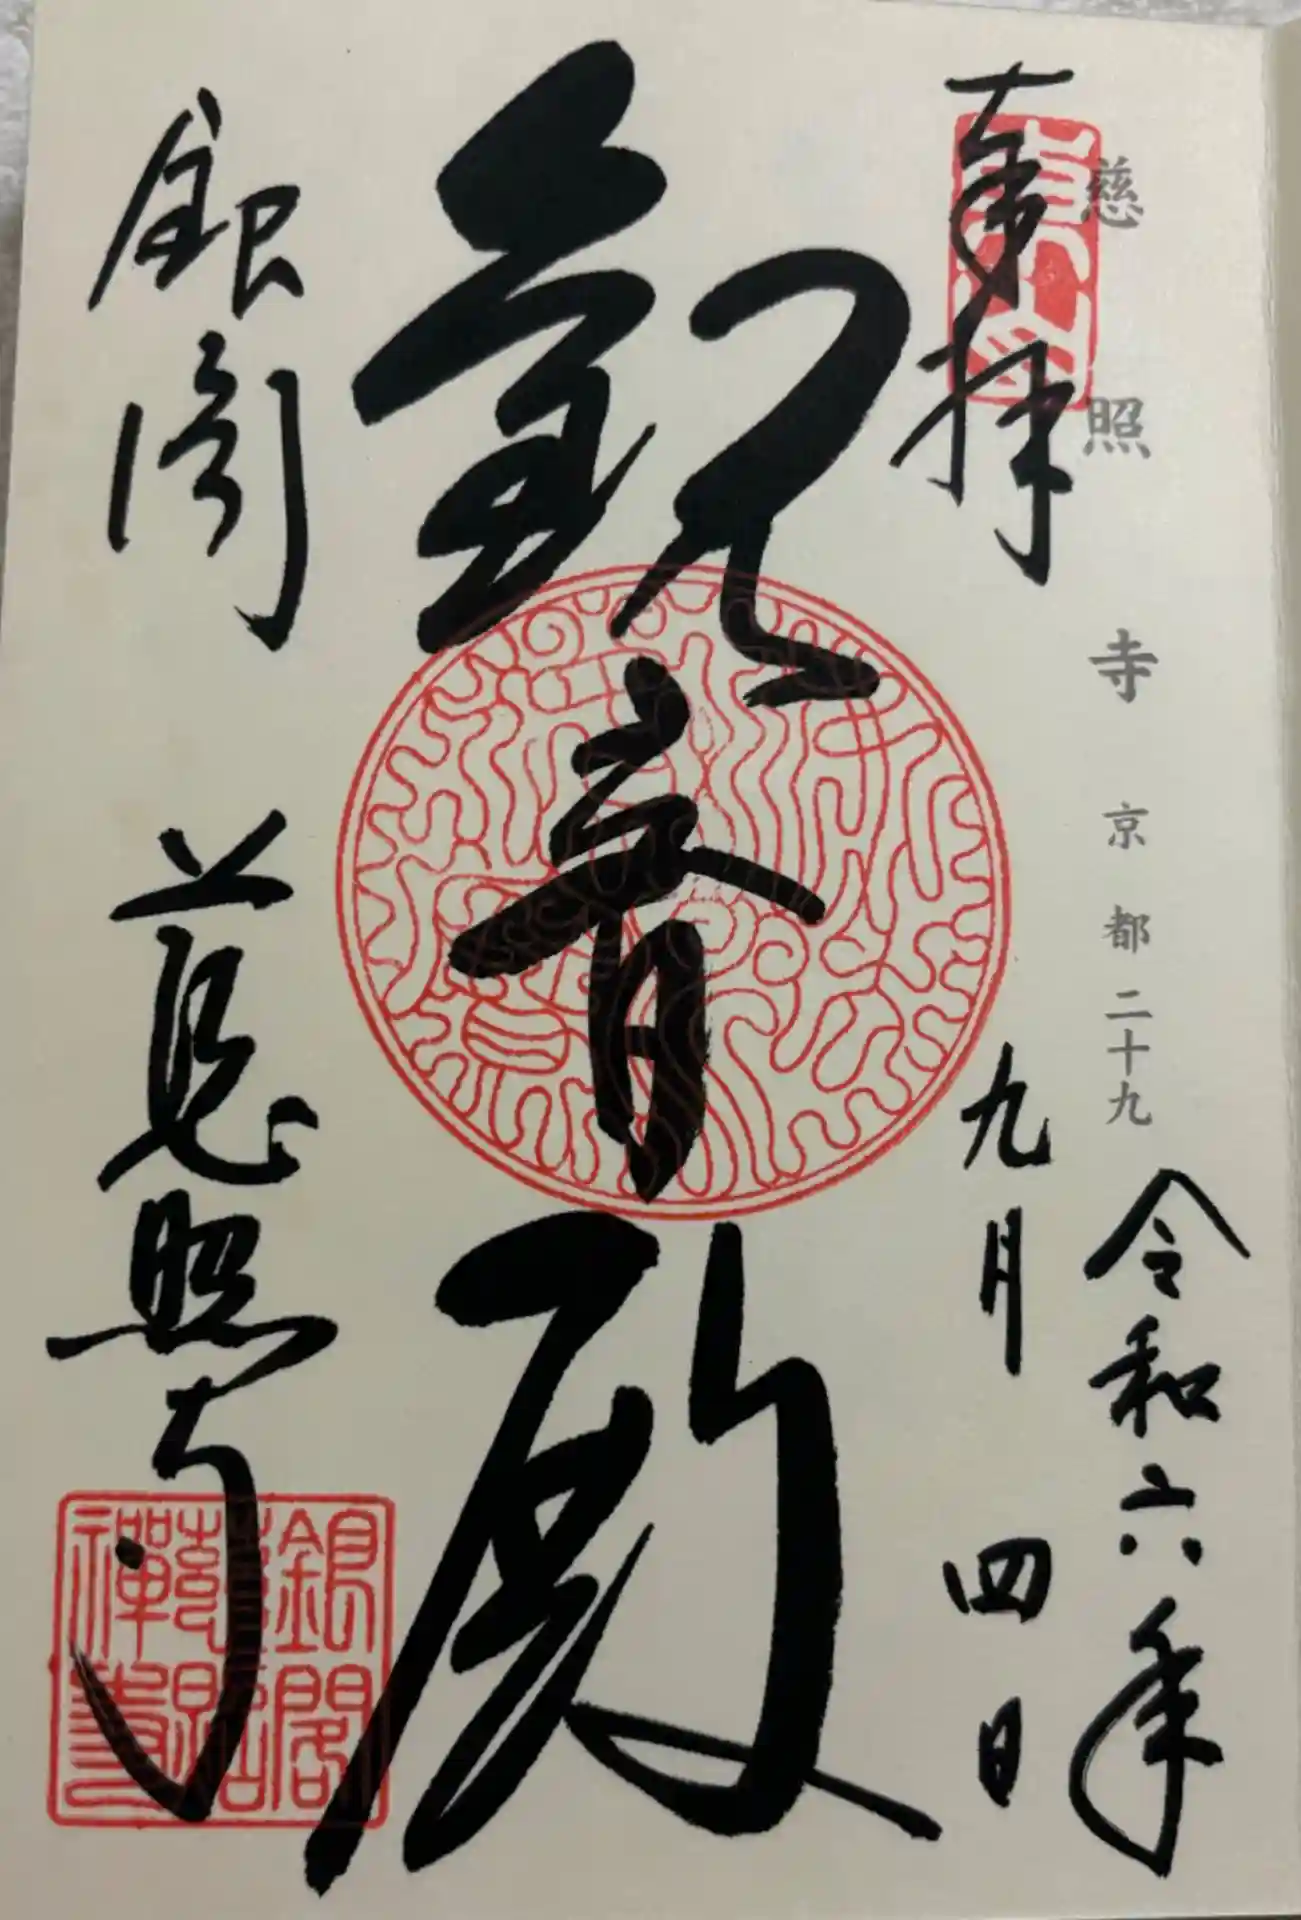 慈照寺 京都二十九
令和六年
奉拝
九月四日
東山
観音殿
銀閣 慈照寺
銀閣
慈照
禅寺